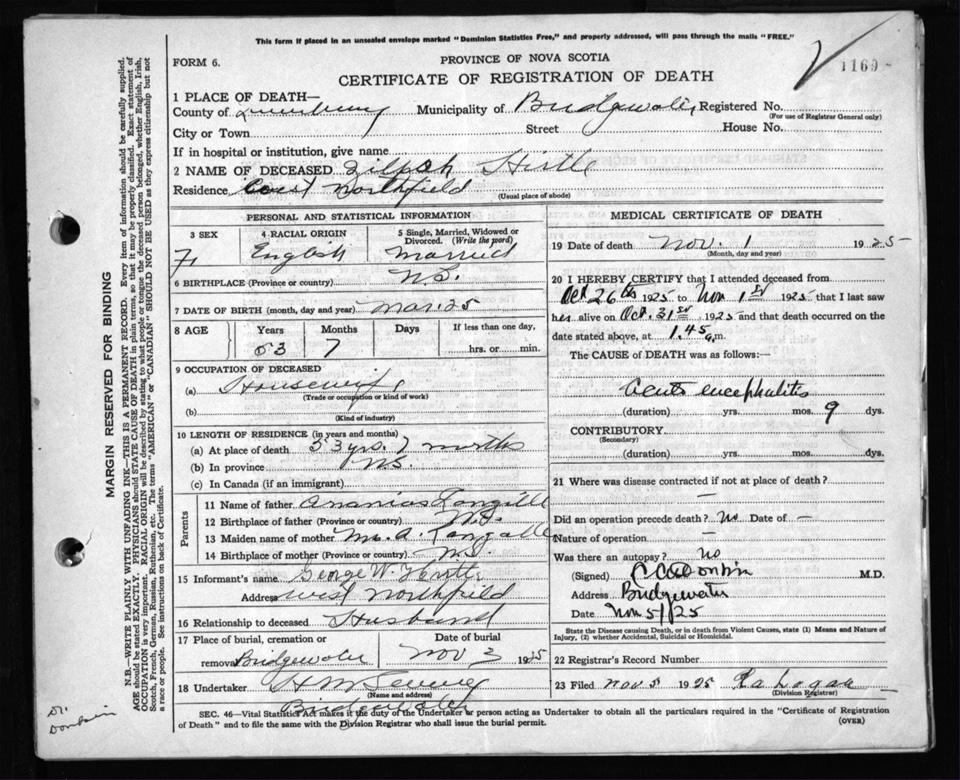 This form if placed in an unsealed envelope marked "Dominion Statistics Free," and properly addressed, will pass through the mails "FREE."
1169
FORM 6.
PROVINCE OF NOVA SCOTIA
CERTIFICATE OF REGISTRATION OF DEATH
1 PLACE OF DEATH—
County of Lunenburg Municipality of Bridgewater Registered No.
(For use of Registrar General only)
City or Town Street House No.
If in hospital or institution, give name
2 NAME OF DECEASED Zilpah Hirtle
Residence West Northfield
(Usual place of abode)
PERSONAL AND STATISTICAL INFORMATION
3 SEX 4 RACIAL ORIGIN 5 Single, Married, Widowed or Divorced. (Write the word)
F. English Married
6 BIRTHPLACE (Province or country) N.S.
7 DATE OF BIRTH (month, day and year) Mar. 25
8 AGE Years Months Days If less than one day,
53 7 hrs. or min.
9 OCCUPATION OF DECEASED
(a) Housewife
(Trade or occupation or kind of work)
(b)
(Kind of industry)
10 LENGTH OF RESIDENCE (in years and months)
(a) At place of death 53 yrs. 7 months
(b) In province N.S.
(c) In Canada (if an immigrant)
Parents
11 Name of father Ananias Langille
12 Birthplace of father (Province or country) N.S.
13 Maiden name of mother Mrs. A. Langille
14 Birthplace of mother (Province or country) N.S.
15 Informant's name George W.
Address West Northfield
16 Relationship to deceased Husband
17 Place of burial, cremation or removal Bridgewater
Date of burial Nov 3 1925
18 Undertaker
(Name and address)
Bridgewater
MEDICAL CERTIFICATE OF DEATH
19 Date of death Nov. 1 1925
(Month, day and year)
20 I HEREBY CERTIFY that I attended deceased from
Oct 26th 1925 to Nov 1st 1925 that I last saw
her alive on Oct. 31st 1925 and that death occurred on
date stated above, at 1.45 a.m.
The CAUSE of DEATH was as follows:—
Acute encephalitis
(duration) yrs. mos. 9 dys.
CONTRIBUTORY
(Secondary)
(duration) yrs. mos. dys.
21 Where was disease contracted if not at place of death?
—
Did an operation precede death? No Date of —
Nature of operation —
Was there an autopsy? No
(Signed) M.D.
Address Bridgewater
Date Nov 5/25
State the Disease causing Death, or in death from Violent Causes, state (1) Means and Nature of Injury, (2) whether Accidental, Suicidal or Homicidal.
22 Registrar's Record Number
23 Filed Nov 5 1925
(Division Registrar)
SEC. 46—Vital Statistics Act makes it the duty of the Undertaker or person acting as Undertaker to obtain all the particulars required in the "Certificate of Registration
of Death" and to file the same with the Division Registrar who shall issue the burial permit.
(OVER)
MARGIN RESERVED FOR BINDING
N.B.—WRITE PLAINLY WITH UNFADING INK—THIS IS A PERMANENT RECORD. Every item of information should be carefully supplied.
AGE should be stated EXACTLY. PHYSICIANS should STATE CAUSE OF DEATH in plain terms, so that it may be properly classified. Exact statement of
OCCUPATION is very important. RACIAL ORIGIN will be described by stating to what people or tongue the deceased person belonged, whether English, Irish,
Scotch, French, German, Russian, Ruthenian, etc. The terms "AMERICAN" or "CANADIAN" SHOULD NOT BE USED as they express citizenship but not
a race or people. See instructions on back of Certificate.
Dr.